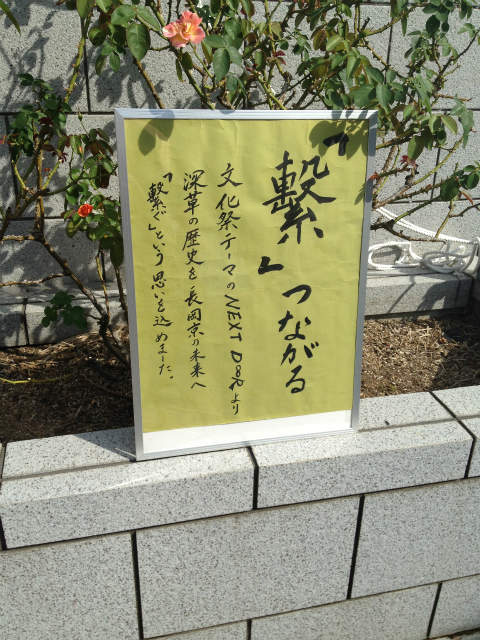 「繋」つながる
文化祭テーマのNEXT DOORより
深草の歴史を長岡京の未来へ
「繋ぐ」という思いを込めました。